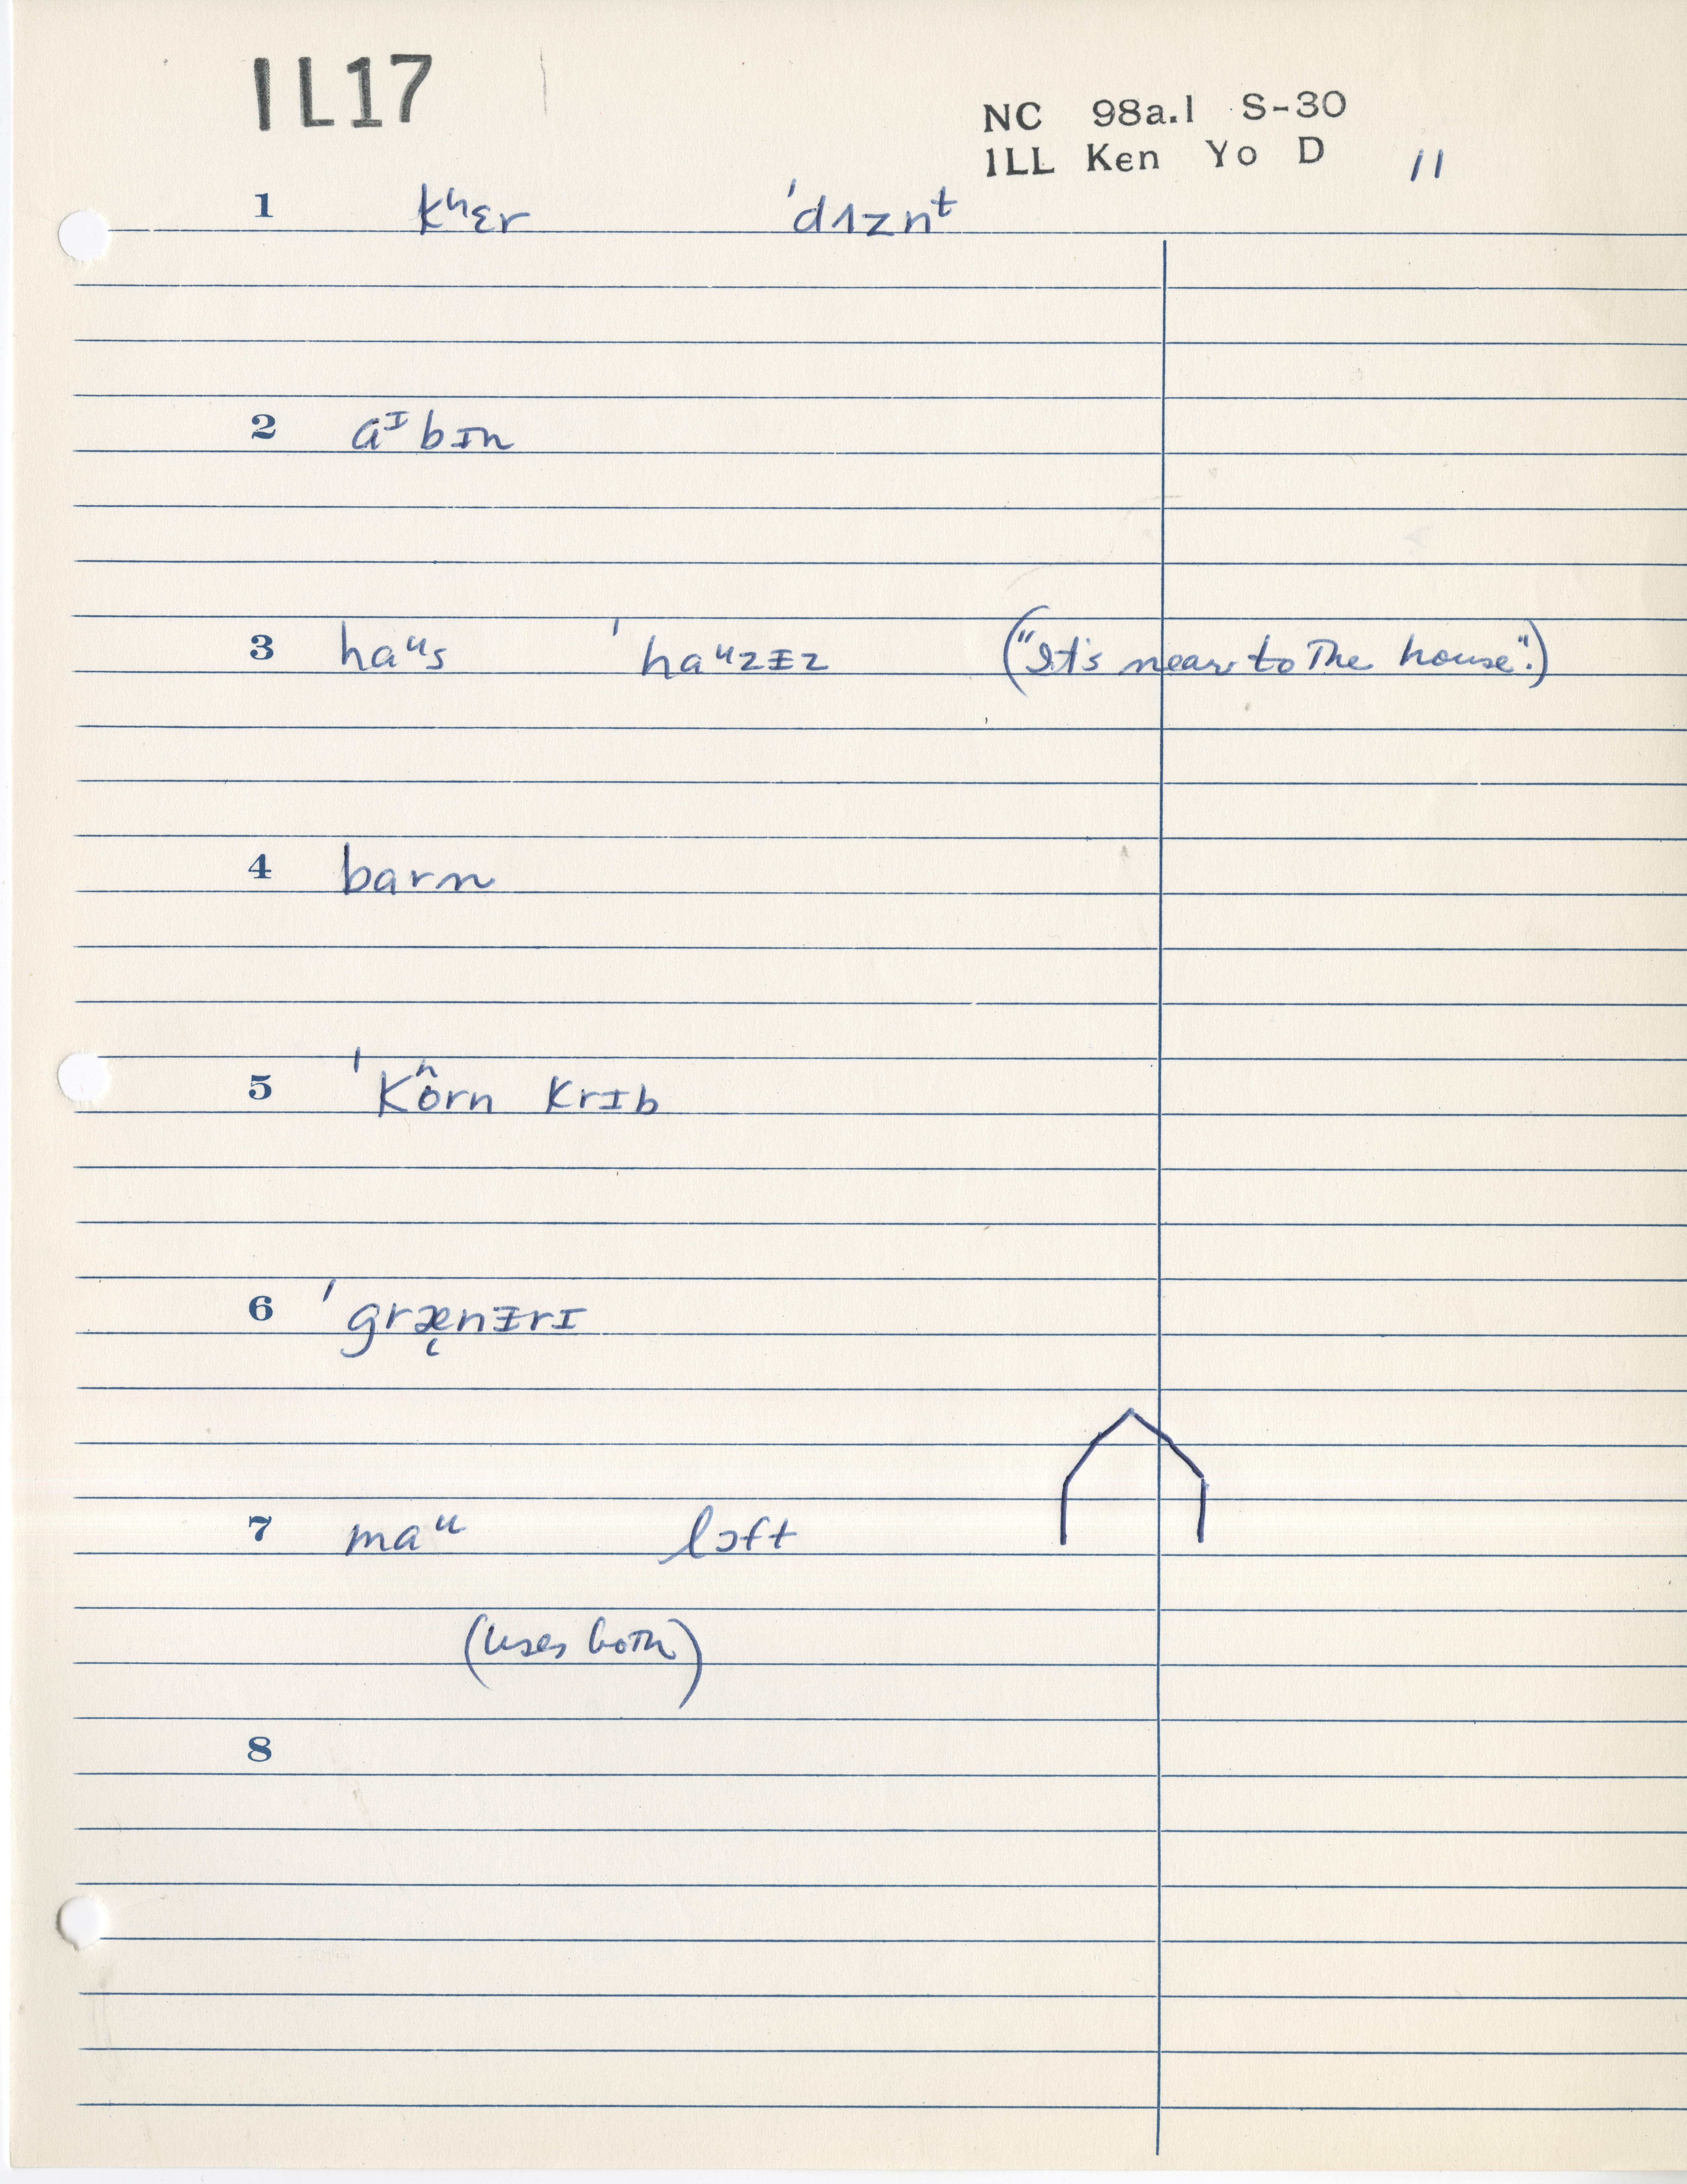 IL17
NC 98a.1 S-30
ILL Ken Yo D 11
1 kʰɛr ˈdʌznᵗ
2 aᶦbɪn
3 haᵘs ˈhaᵘzɪ̵z ("It's near to the house".)
4 barn
5 ˈkʰôrn krɪb
6 ˈgræ̨nɪ̵rɪ
7 maᵘ lɔft
(uses both)
8